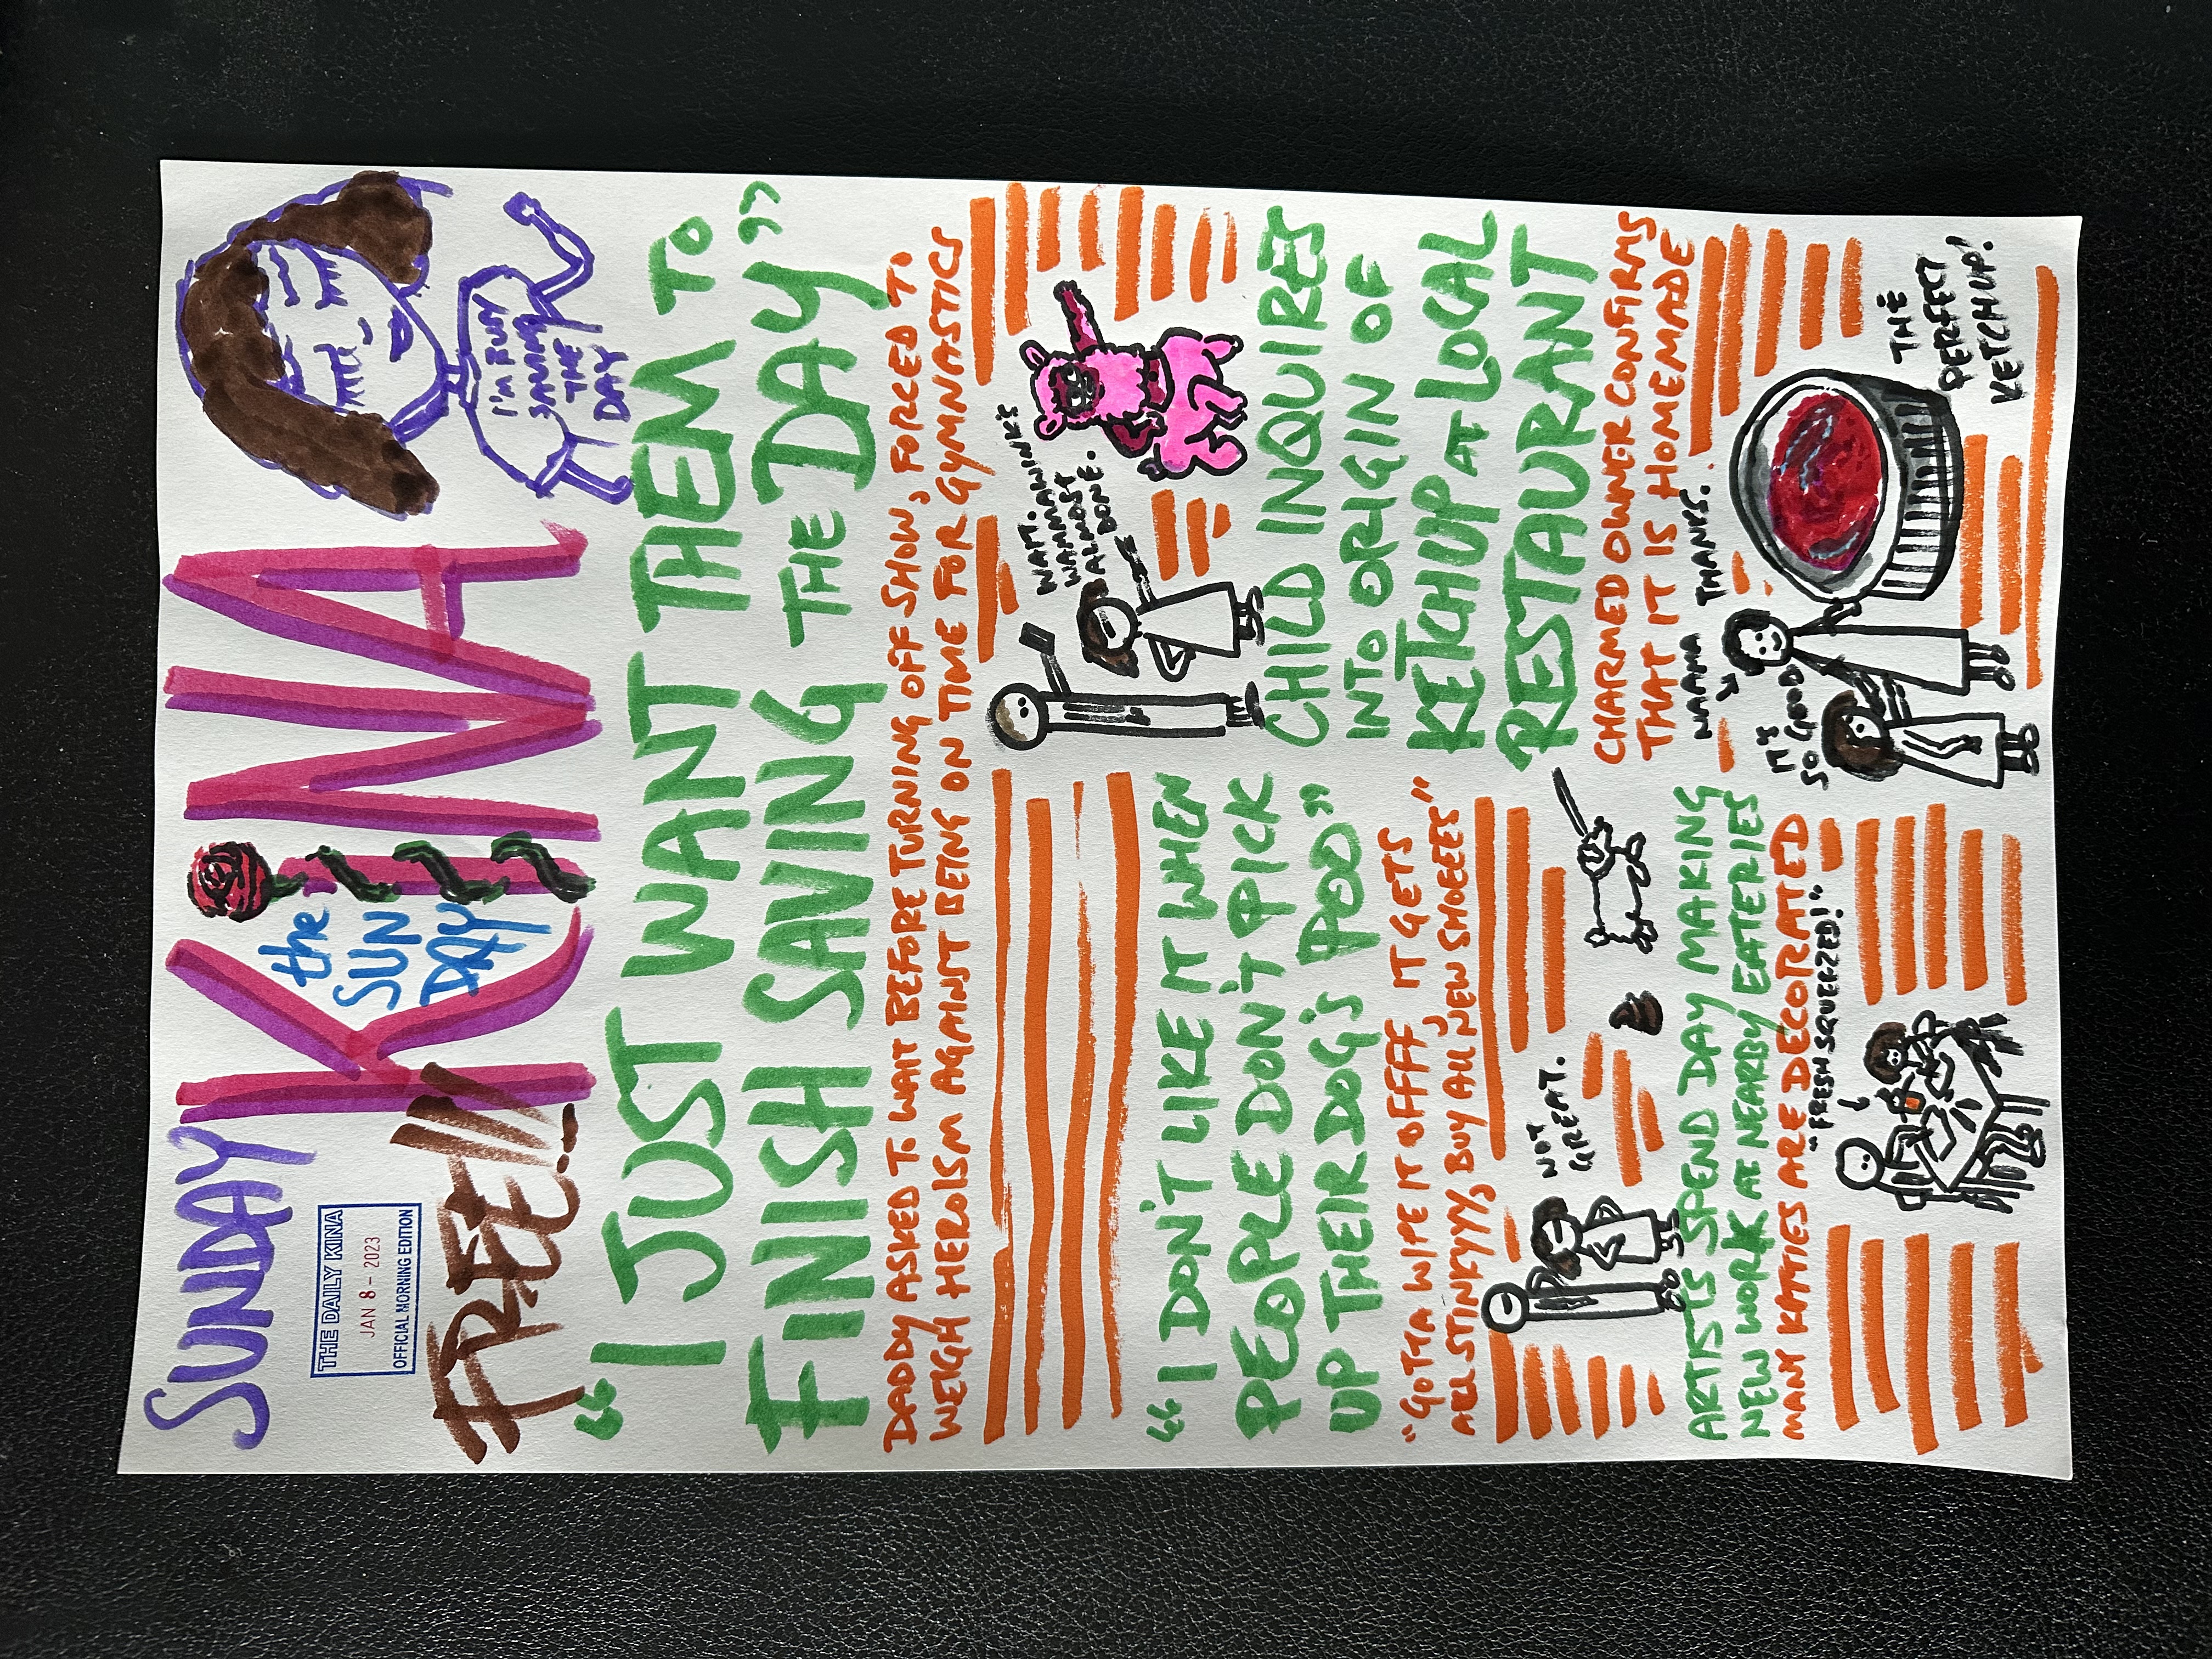 SUNDAY
KiNA
the
SUN
DAY
THE DAILY KINA
JAN 8 - 2023
OFFICIAL MORNING EDITION
FREE!!!
I'M BUSY
SAVING
THE
DAY
"I JUST WANT THEM TO
FINISH SAVING THE DAY"
DADDY ASKED TO WAIT BEFORE TURNING OFF SHOW, FORCED TO
WEIGH HEROISM AGAINST BEING ON TIME FOR GYMNASTICS
WAIT.
ALMOST
DONE.
"I DON'T LIKE IT WHEN
PEOPLE DON'T PICK
UP THEIR DOG'S POO"
"GOTTA WIPE IT OFFF, IT GETS
ALL STINKYYY, BUY ALL NEW SHOEEES"
NOT
GREAT.
ARTISTS SPEND DAY MAKING
NEW WORK AT NEARBY EATERIES
MANY KITTIES ARE DECORATED
"FRESH SQUEEZED!"
CHILD INQUIRES
INTO ORIGIN OF
KETCHUP AT LOCAL
RESTAURANT
CHARMED OWNER CONFIRMS
THAT IT IS HOMEMADE
MAMA
THANKS.
IT'S
SO GOOD
THE
PERFECT
KETCHUP!